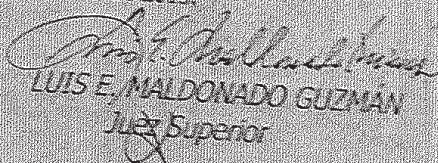 LUIS E. MALDONADO GUZMÁN
Juez Superior